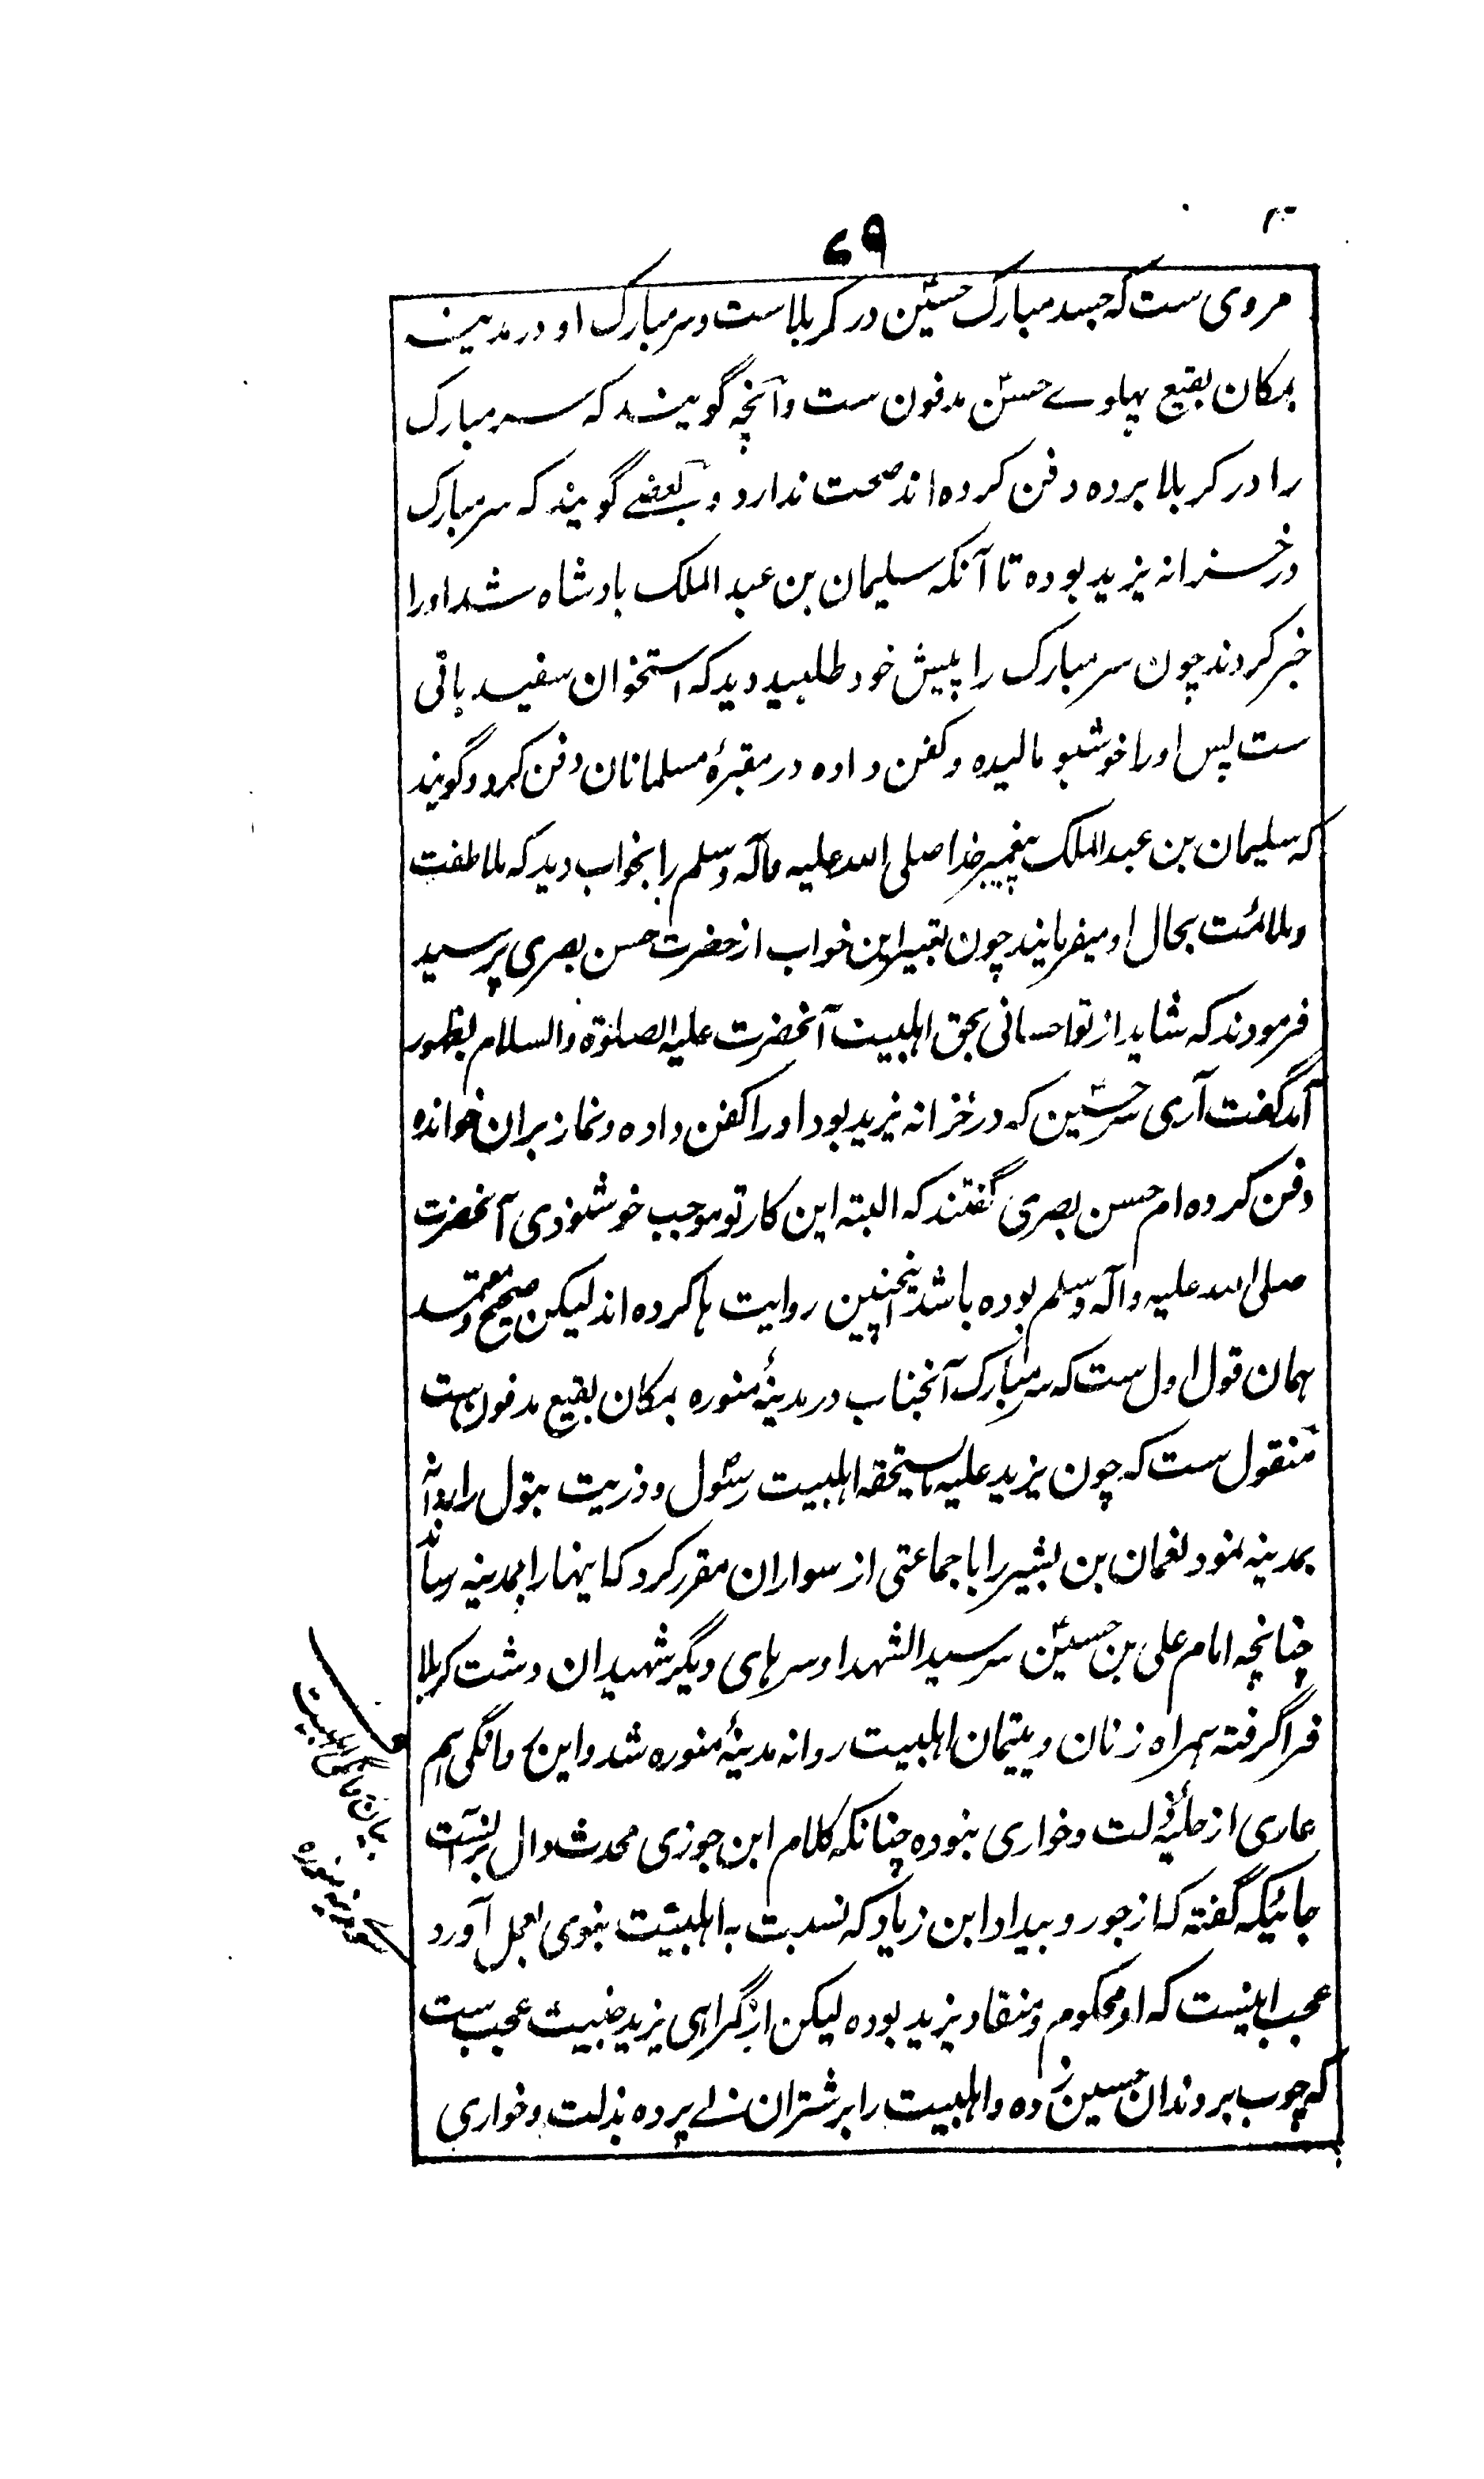 ۷۹
مروی ست که جسد مبارک حسینؑ در کربلاست و سر مبارک او در مدینه
بمکان بقیع پهلوے حسنؑ مدفون ست و آنچه گویند که سر مبارک
را در کربلا برده دفن کرده اند صحت ندارد و بعضے گویند که سر مبارک
در خزانه یزید بوده تا آنکه سلیمان بن عبد الملک بادشاه شد او را
خبر کردند چون سر مبارک را پیش خود طلبید دید که استخوان سفید باقی
ست پس او را خوشبو مالیده و کفن داده در مقبرهٔ مسلمانان دفن کرد و گویند
که سلیمان بن عبد الملک پیغمبر خدا صلی الله علیه وآله وسلم را بخواب دید که ملاطفت
و ملائمت بحال او میفرمایند چون تعبیر این خواب از حضرت حسن بصری پرسید
فرمودند که شاید از تو احسانی بحق اهلبیت آنحضرت علیه الصلوٰة والسلام بظهور
آمد گفت آری سر حسینؑ که در خزانه یزید بود او را کفن داده و نماز بران خوانده
دفن کرده ام حسن بصری گفتند که البته این کار تو موجب خوشنودی آنحضرت
صلی الله علیه وآله وسلم بوده باشد اینچنین روایت ها کرده اند لیکن صحیح و معتمد
همان قول اول ست که سر مبارک آنجناب در مدینهٔ منوره بمکان بقیع مدفون ست
منقول ست که چون یزید علیه ما یستحقه اهلبیت رسول و ذریت بتول را روانه
بمدینه نمود نعمان بن بشیر را با جماعتی از سواران مقرر کرد که اینها را بمدینه رساند
چنانچه امام علی بن حسینؑ سر سید الشهدا و سرهای دیگر شهیدان دشت کربلا
فرا گرفته همراه زنان و یتیمان اهلبیت روانه مدینهٔ منوره شد و این روانگی هم
عاری از حلیهٔ ذلت و خواری نبوده چنانکه کلام ابن جوزی محدث دال برآنست
جائیکه گفته که از جور و بیداد ابن زیاد که نسبت به اهلبیت نبوی بعمل آورد
عجب نیست که او محکوم و منقاد یزید بوده لیکن از گمراهی یزید خبیث عجب ست
که چوب بر دندان حسین زده و اهلبیت را بر شتران بے پرده بذلت و خواری
بیان روانگی اهلبیت
بسوی مدینه منوره